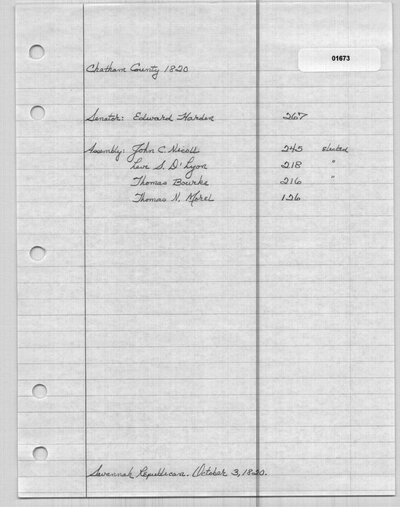 01673
Chatham County 1820
Senator: Edward Harden 267
Assembly: John C. Nicoll 245 elected
Levi S. D'Lyon 218 "
Thomas Bourke 216 "
Thomas N. Morel 126
Savannah Republican. October 3, 1820.